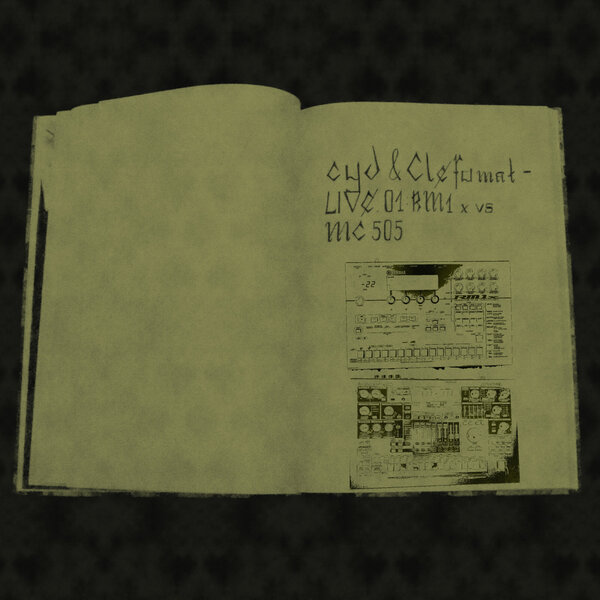 cyd & Clefumat -
LIVE.01 RM1 x vs
MC 505
-22
RM1x